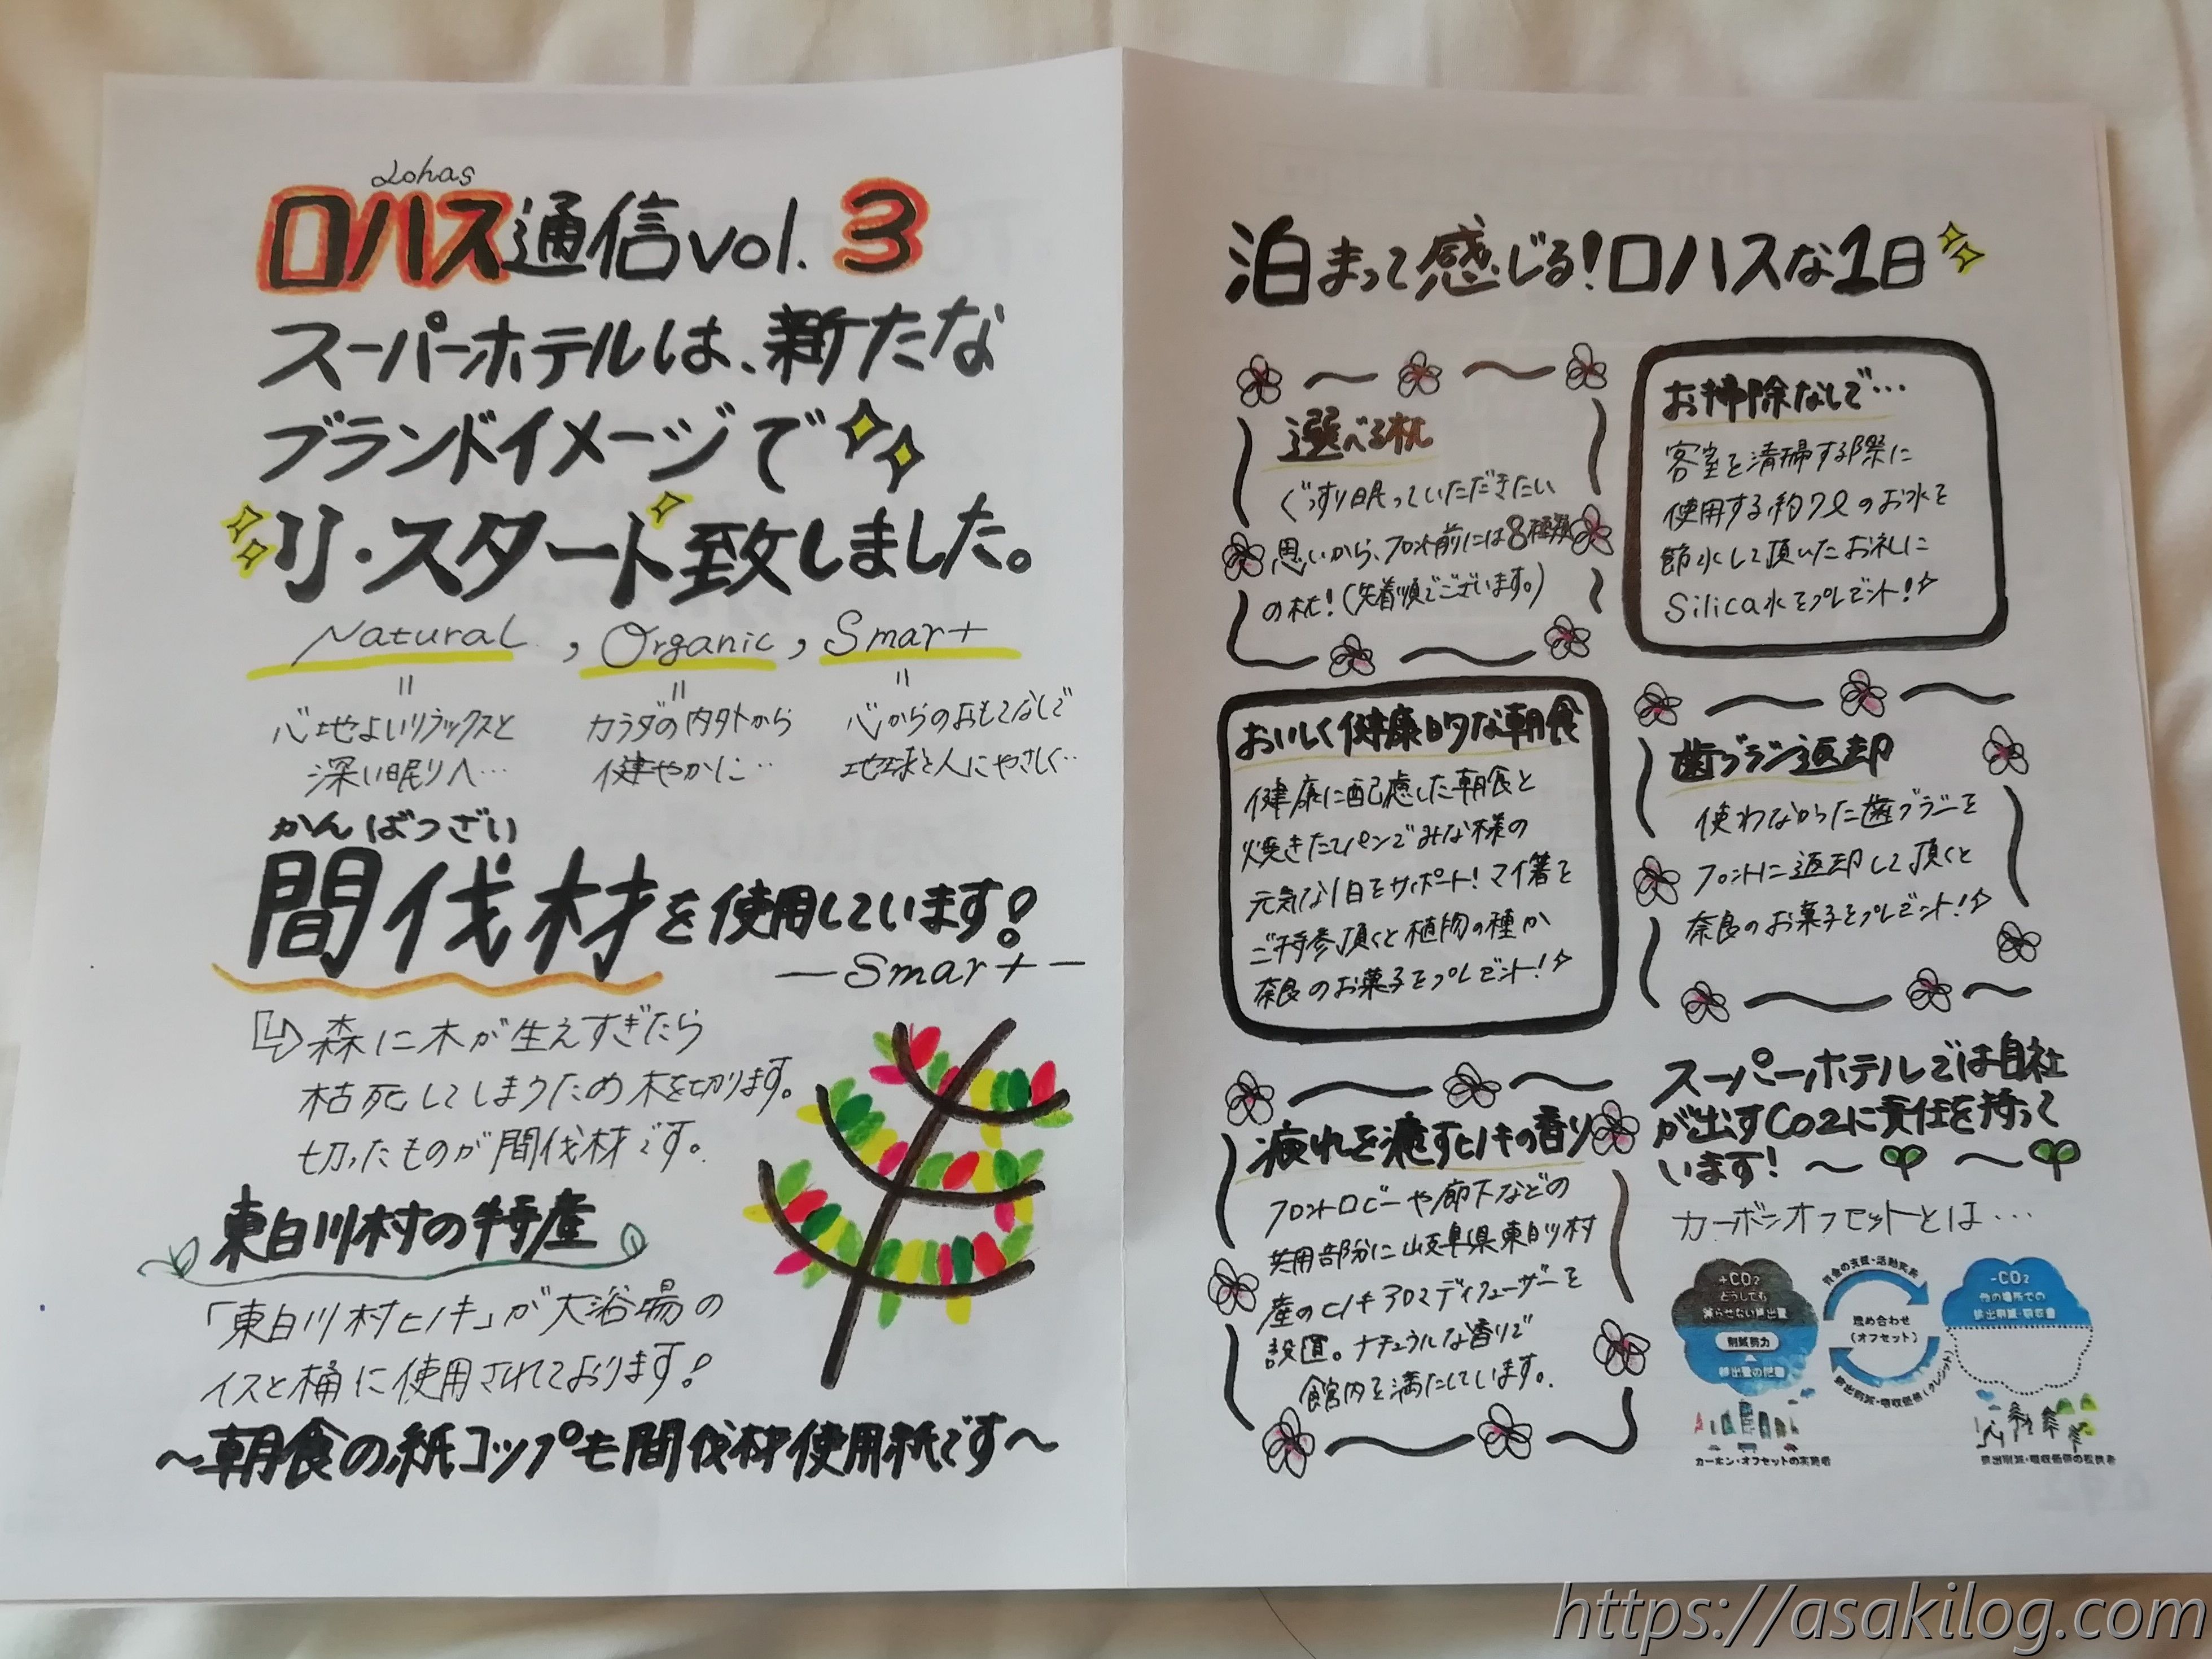 Lohas
ロハス通信vol.3
スーパーホテルは、新たな
ブランドイメージで
リ・スタート致しました。
Natural , Organic , Smart
〃 〃 〃
心地よいリラックスと
深い眠りへ…
カラダの内外から
健やかに…
心からのおもてなしで
地球と人にやさしく…
かんばつざい
間伐材を使用しています!
―Smart―
森に木が生えすぎたら
枯死してしまうため木を切ります。
切ったものが間伐材です。
東白川村の特産
「東白川村ヒノキ」が大浴場の
イスと桶に使用されております!
〜朝食の紙コップも間伐材使用紙です〜
泊まって感じる!ロハスな1日
選べる枕
ぐっすり眠っていただきたい
思いから、フロント前には8種類
の枕!(先着順でございます。)
お掃除なしで…
客室を清掃する際に
使用する約7ℓのお水を
節水して頂いたお礼に
Silica水をプレゼント!
おいしく健康的な朝食
健康に配慮した朝食と
焼きたてパンでみな様の
元気な1日をサポート!マイ箸を
ご持参頂くと植物の種か
奈良のお菓子をプレゼント!
歯ブラシ返却
使わなかった歯ブラシを
フロントに返却して頂くと
奈良のお菓子をプレゼント!
疲れを癒すヒノキの香り
フロントロビーや廊下などの
共用部分に岐阜県東白川村
産のヒノキアロマディフューザーを
設置。ナチュラルな香りで
館内を満たしています。
スーパーホテルでは自社
が出すCO2に責任を持って
います!〜 〜
カーボンオフセットとは…
+CO2
どうしても
減らせない排出量
削減努力
排出量の把握
資金の支援・活動実施
埋め合わせ
(オフセット)
排出削減・吸収価値(クレジット)
-CO2
他の場所での
排出削減・吸収量
カーボン・オフセットの実施者
排出削減・吸収価値の提供者
https://asakilog.com